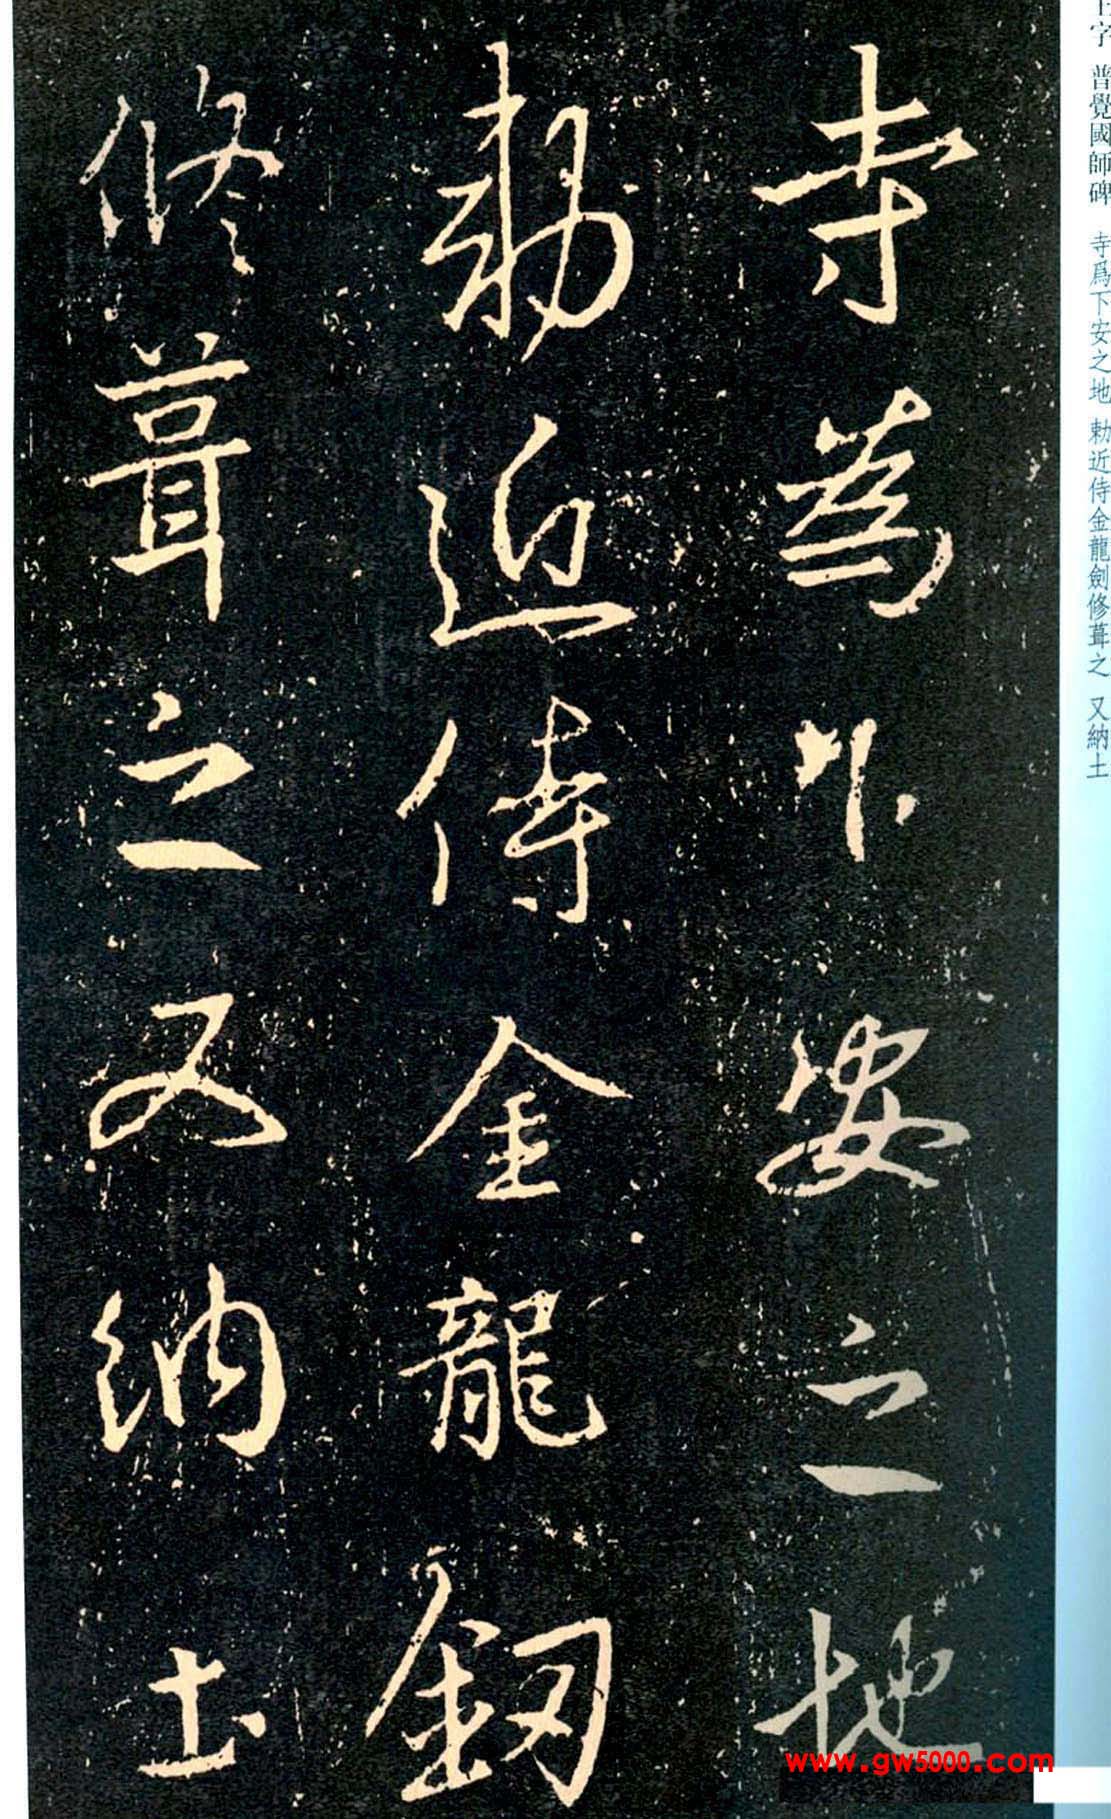 寺為下安之地
勅近侍金龍釼
修葺之又納土
王字 普覺國師碑 寺爲下安之地 勅近侍金龍劍修葺之 又納土
www.gw5000.com